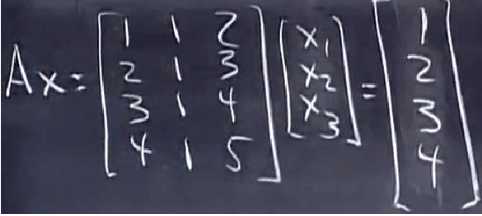 Ax = [1 1 2; 2 1 3; 3 1 4; 4 1 5] [x₁; x₂; x₃] = [1; 2; 3; 4]